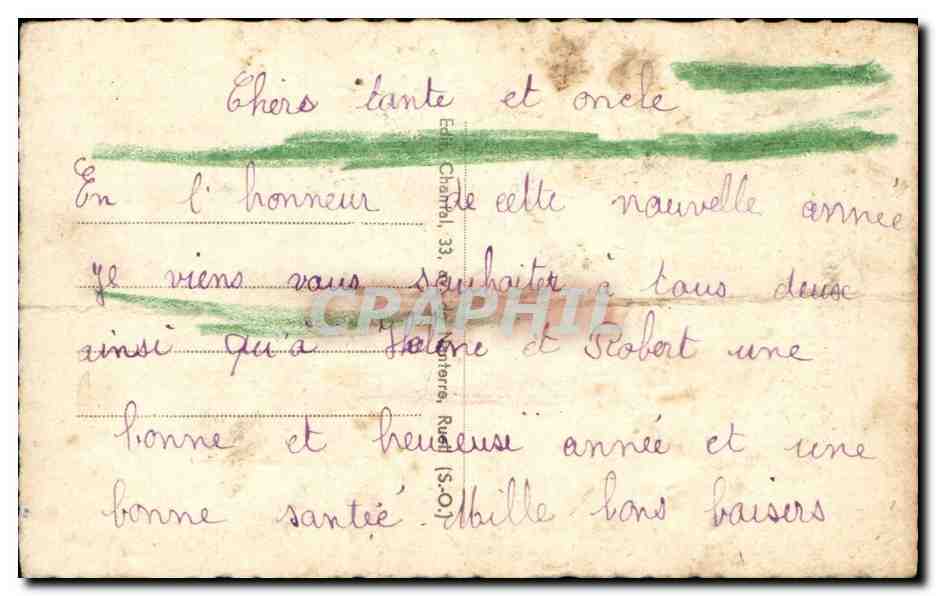 Chers tante et oncle
En l'honneur de cette nouvelle année
je viens vous souhaiter à tous deux
ainsi qu'à Hélène et Robert une
bonne et heureuse année et une
bonne santée Mille bons baisers
Edit. Chantal, 33, Nanterre, Rueil (S.-O.)
CPAPHIL